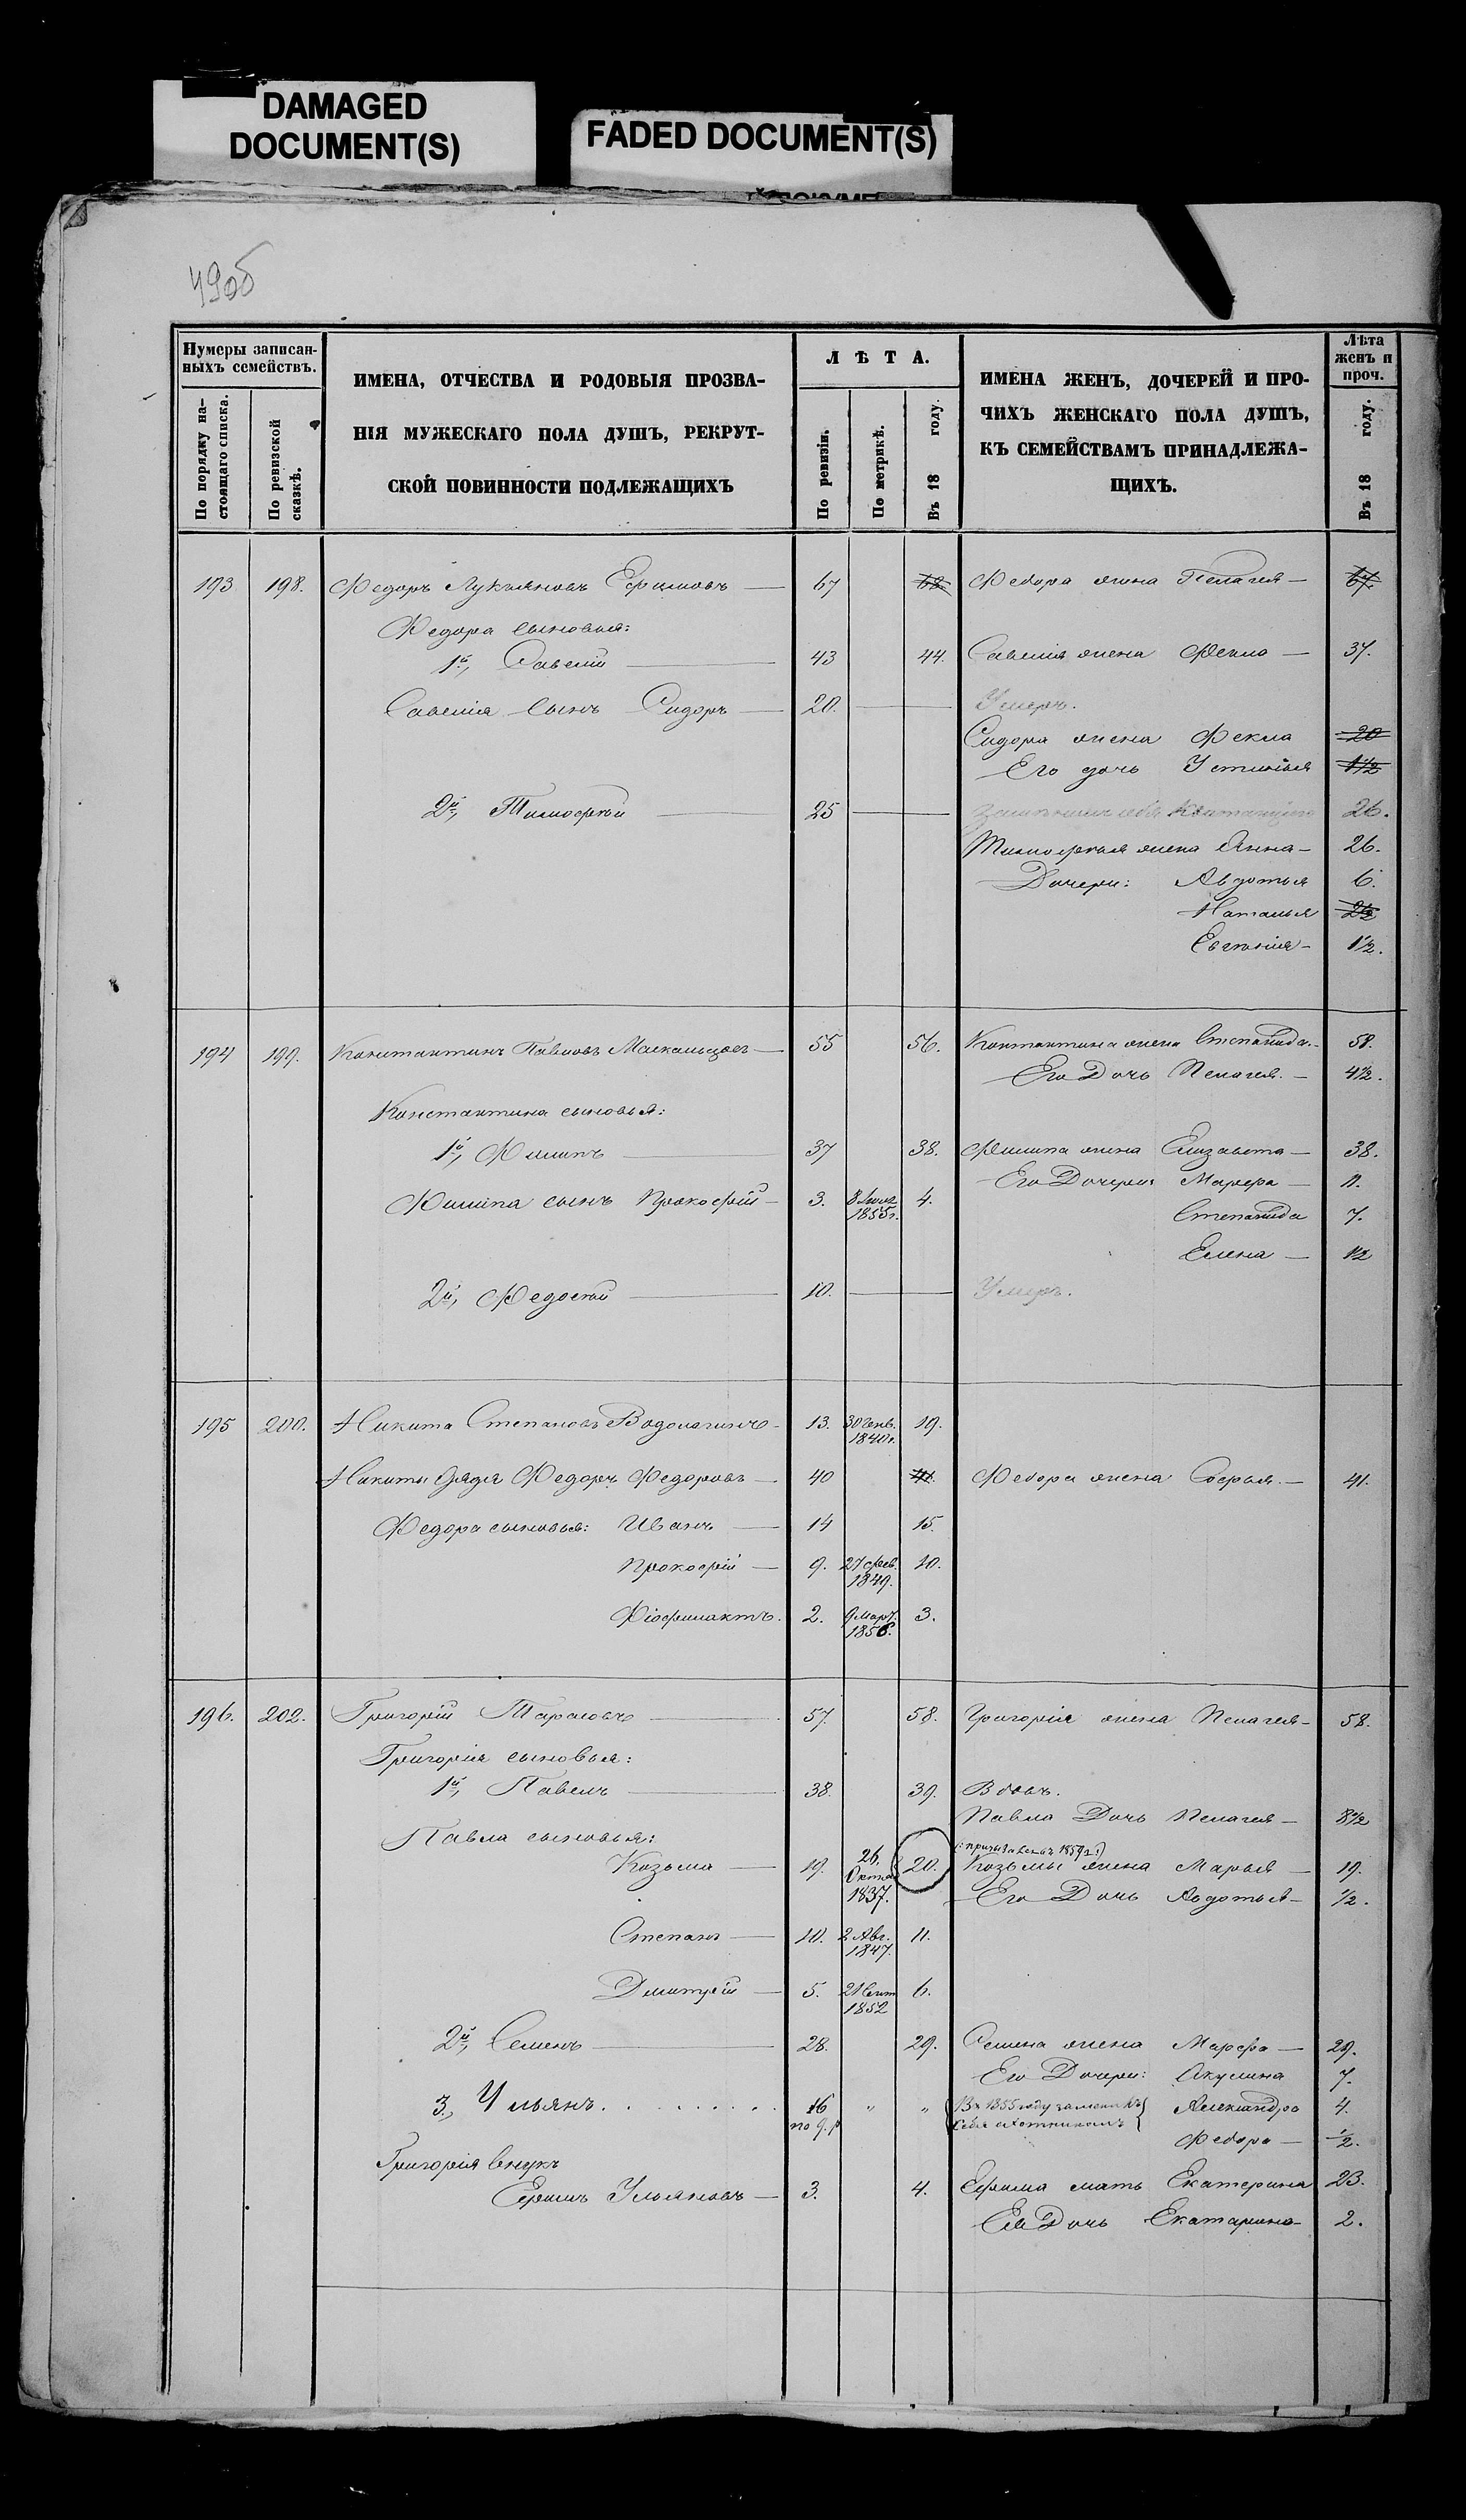 DAMAGED
DOCUMENT(S)
FADED DOCUMENT(S)
49об
Нумеры записан-
ныхъ семействъ.
По порядку на-
стоящаго списка.
По ревизской
сказкѣ.
ИМЕНА, ОТЧЕСТВА И РОДОВЫЯ ПРОЗВА-
НІЯ МУЖЕСКАГО ПОЛА ДУШЪ, РЕКРУТ-
СКОЙ ПОВИННОСТИ ПОДЛЕЖАЩИХЪ
ЛѢТА.
По ревизіи.
По метрикѣ.
Въ 18 году.
ИМЕНА ЖЕНЪ, ДОЧЕРЕЙ И ПРО-
ЧИХЪ ЖЕНСКАГО ПОЛА ДУШЪ,
КЪ СЕМЕЙСТВАМЪ ПРИНАДЛЕЖА-
ЩИХЪ.
Лѣта
женъ и
проч.
Въ 18 году.
193 198. Федоръ Лукъяновъ Ефимовъ — 67 68 Федора жена Пелагея — 67
Федора сыновья:
1й, Савелій — 43 44. Савелія жена Фекла — 37.
Савелія сынъ Сидоръ — 20. — Умеръ.
Сидора жена Фекла 20
Его дочь Устинья 1½
2й, Тимофѣй — 25 — 26.
Тимофѣя жена Анна — 26.
Дочери: Авдотья 6.
Наталья 2½
Евгенія — 1½.
194 199. Константинъ Павловъ — 55 56. Константина жена Степанида. — 58.
Его Дочь Пелагея. — 4½.
Константина сыновья:
1й, Филипъ — 37 38. Филипа жена Елизавета — 38.
Его Дочери: Марфа — 11.
Филипа сынъ Прокофій — 3. 8 Іюля 1855г. 4.
Степанида 7.
Елена — 1½
2й, Федосѣй — 10. — Умеръ.
195 200. Никита Степановъ Водолагинъ — 13. 30 Генв. 1840г. 19.
Никиты дядя Федоръ Федоровъ — 40 41. Федора жена Софья. — 41.
Федора сыновья: Иванъ — 14 15.
Прокофій — 9. 27 Фев. 1849. 10.
Фіофилактъ. 2. 9 Март. 1856. 3.
196. 202. Григорій Тарасовъ — 57. 58. Григорія жена Пелагея — 58.
Григорія сыновья:
1й, Павелъ — 38. 39. Вдовъ.
Павла Дочь Пелагея — 8½
Павла сыновья:
Козьма — 19. 26. Октя 1837. 20. Козьмы жена Марья — 19.
Его Дочь Авдотья — ½.
Степанъ — 10. 2 Авг. 1847. 11.
Дмитрій — 5. 21 Сент 1852 6.
2й, Семенъ — 28. 29. Семена жена Марфа — 29.
Его Дочери: Акулина 7.
3., Ульянъ. . . . . . . . . 16 „ „ Въ 1855 году замѣнилъ Александра 4.
себя охотникомъ Федора — ½.
Григорія внукъ
Ефимъ Ульяновъ — 3. 4. Ефима мать Екатерина 23.
Ея Дочь Екатарина — 2.